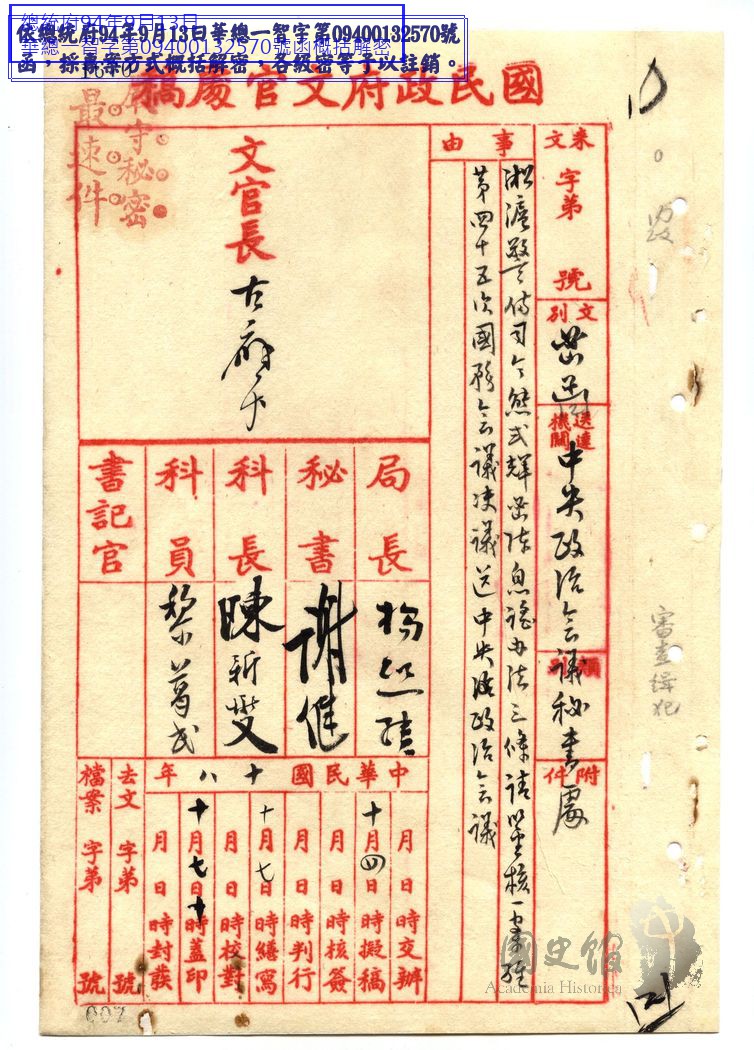 總統府94年9月13日
華總一智字第09400132570號函概括解密
依總統府94年9月13日華總一智字第09400132570號
函，採專案方式概括解密，各級密等予以註銷。
國民政府文官處稿
嚴守秘密
最速件
來文
字第
號
文別
密函
送達機關
中央政治會議秘書處
類別
附件
事由
淞滬警備司令熊式輝密陳息謠办法三條請鑒核一案經
第四十五次國務會議决議送中央政治會議
文官長
古應芬
局長
秘書
謝健
科長
陳新燮
科員
黎葛民
書記官
中華民國十八年
月 日 時交辦
十月四日 時擬稿
月 日 時核簽
月 日 時判行
十月七日 時繕寫
月 日 時校對
十月七日十時蓋印
月 日 時封發
去文 字第 號
檔案 字第 號
007
國史館
Academia Historica